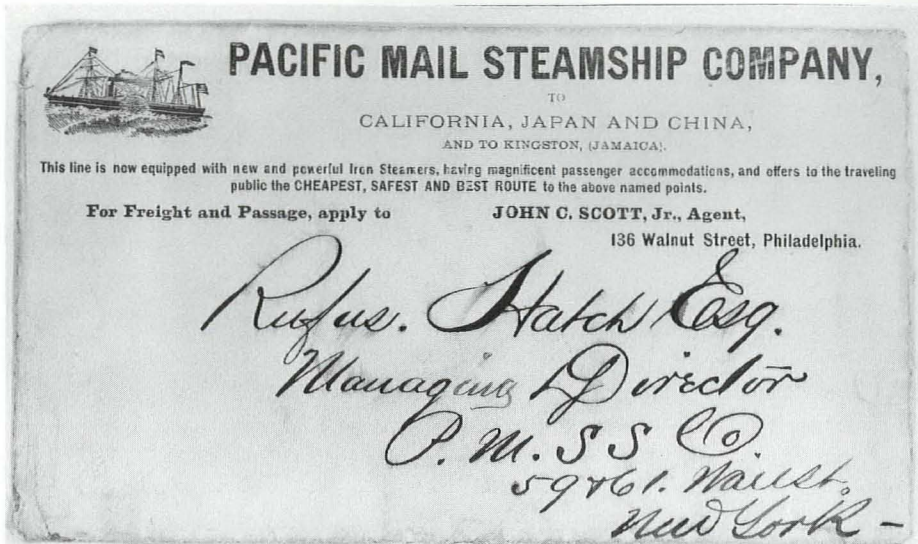 PACIFIC MAIL STEAMSHIP COMPANY,
TO
CALIFORNIA, JAPAN AND CHINA,
AND TO KINGSTON, (JAMAICA).
This line is now equipped with new and powerful Iron Steamers, having magnificent passenger accommodations, and offers to the traveling
public the CHEAPEST, SAFEST AND BEST ROUTE to the above named points.
For Freight and Passage, apply to JOHN C. SCOTT, Jr., Agent,
136 Walnut Street, Philadelphia.
Rufus. Hatch Esq.
Managing Director
P. M. S S Co
59 & 61. Wall St.
New York -